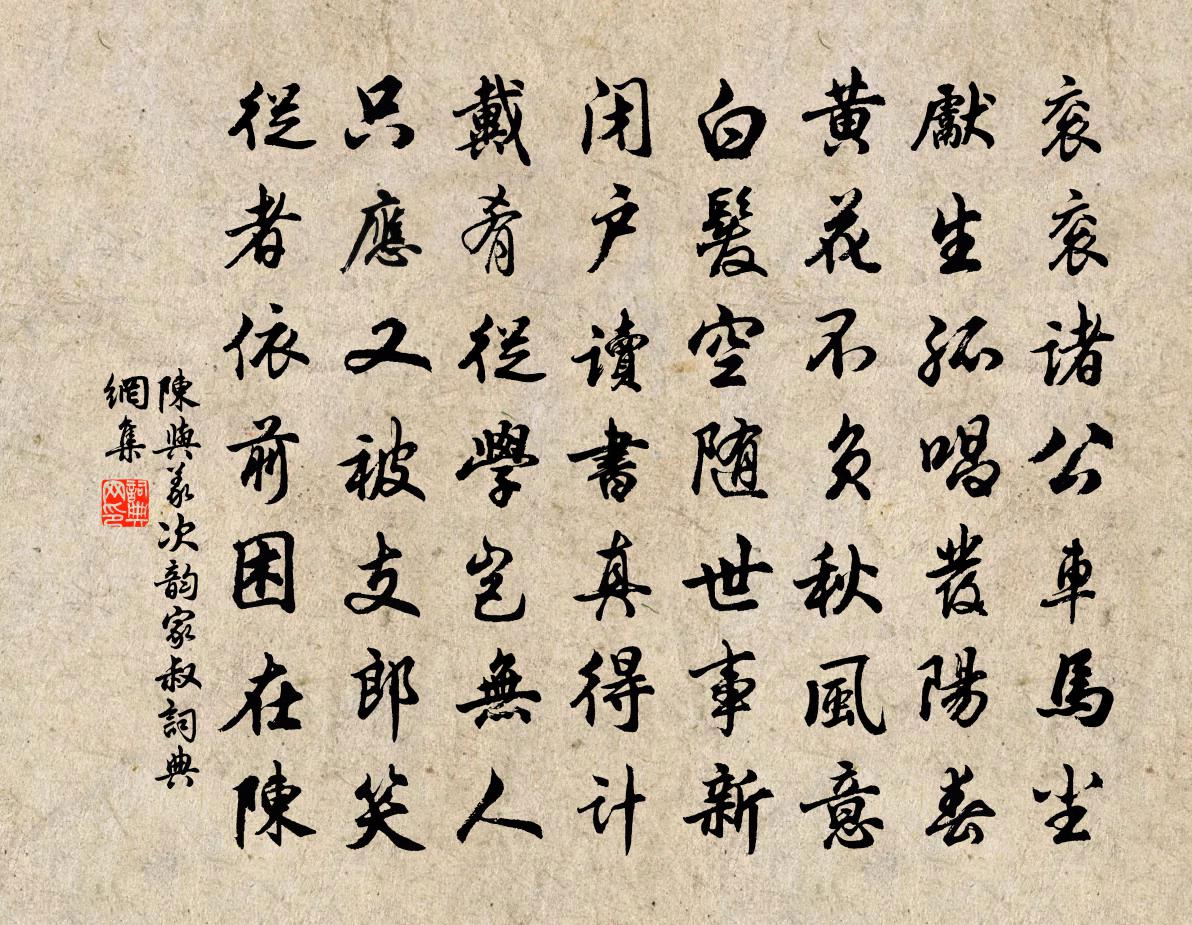 衮衮諸公車馬塵
獻生孤唱發陽春
黄花不负秋風意
白髮空随世事新
闭户讀書真得計
戴肴從學豈無人
只應又被支郎笑
從者依前困在陳
陳與義次韵家叔詞典
網集
詞典
网印